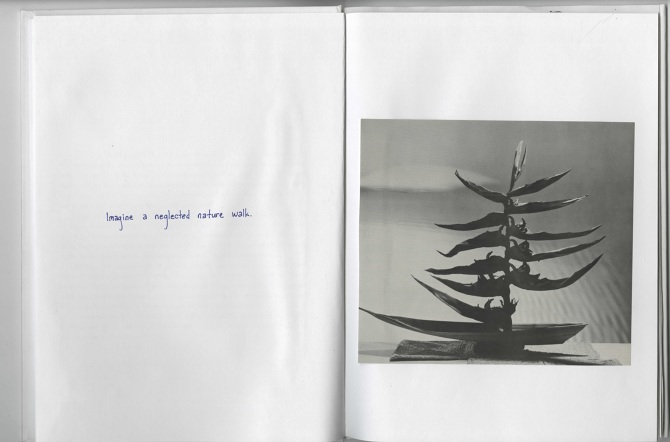 Imagine a neglected nature walk.